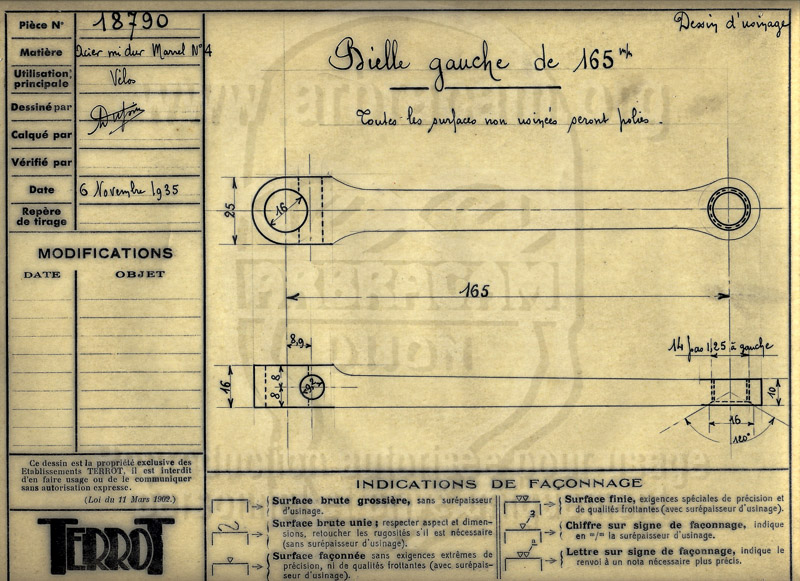 Pièce N° 18790
Matière Acier mi dur Marrel N°4
Utilisation principale Vélos
Dessiné par
Calqué par
Vérifié par
Date 6 Novembre 1935
Repère de tirage
MODIFICATIONS
DATE OBJET
Ce dessin est la propriété exclusive des
Etablissements TERROT, il est interdit
d'en faire usage ou de le communiquer
sans autorisation expresse.
(Loi du 11 Mars 1902.)
TERROT
Dessin d'usinage
Bielle gauche de 165 m/m
Toutes les surfaces non usinées seront polies.
25
16
165
8,9
16
8
8
9,2
14 pas 1,25 à gauche
10
16
120°
INDICATIONS DE FAÇONNAGE
Surface brute grossière, sans surépaisseur
d'usinage.
Surface brute unie; respecter aspect et dimen-
sions, retoucher les rugosités s'il est nécessaire
(sans surépaisseur d'usinage).
Surface façonnée sans exigences extrêmes de
précision, ni de qualités frottantes (avec surépais-
seur d'usinage).
Surface finie, exigences spéciales de précision et
de qualités frottantes (avec surépaisseur d'usinage).
Chiffre sur signe de façonnage, indique
en =/= la surépaisseur d'usinage.
Lettre sur signe de façonnage, indique le
renvoi à un nota nécessaire plus précis.